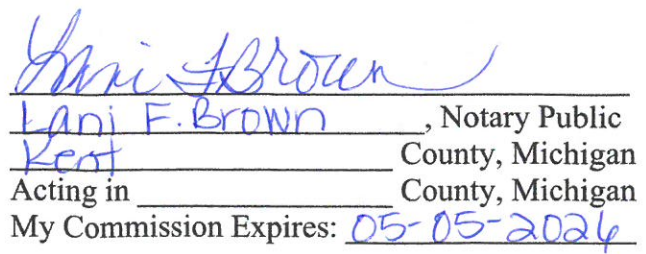 Lani F Brown
Lani F. Brown, Notary Public
Kent County, Michigan
Acting in County, Michigan
My Commission Expires: 05-05-2026